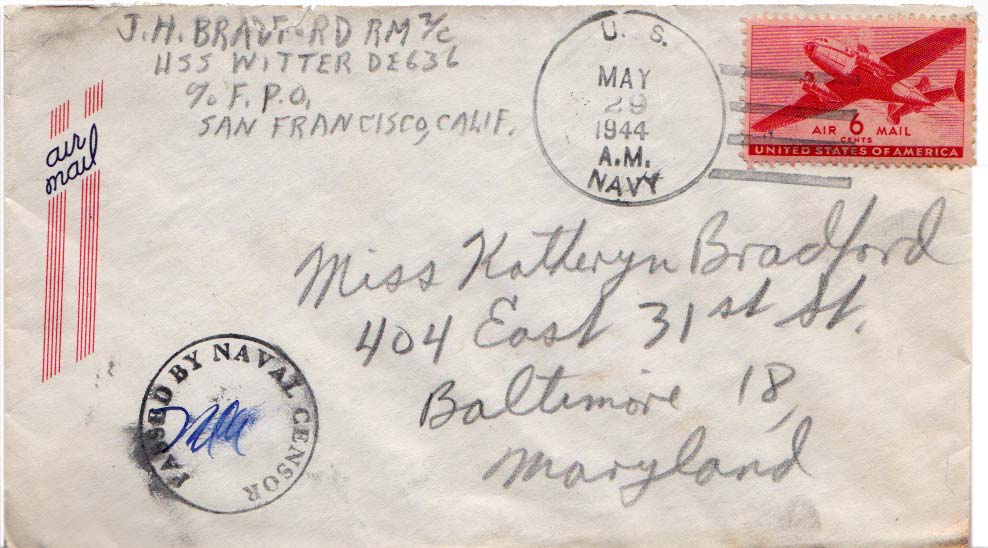 J.H. BRADFORD RM 3/c
USS WITTER DE636
% F.P.O.
SAN FRANCISCO, CALIF.
air
mail
U. S.
MAY
29
1944
A.M.
NAVY
AIR 6 MAIL
CENTS
UNITED STATES OF AMERICA
Miss Katheryn Bradford
404 East 31st St.
Baltimore 18,
Maryland
PASSED BY NAVAL CENSOR